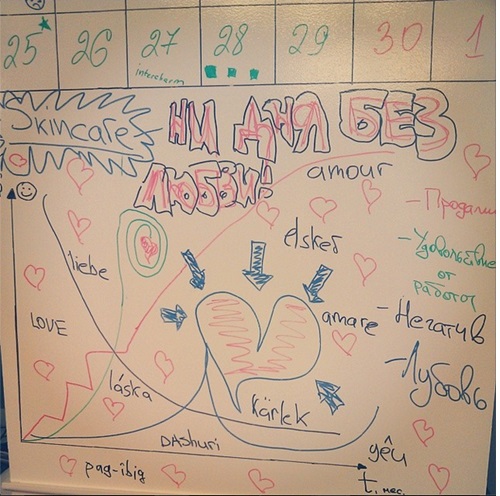 25 26 27 28 29 30 1
intercharm
Skincare
НИ ДНЯ БЕЗ
ЛЮБВИ!
amour
- Продажи
elsker
- Удовольствие
от
работы
liebe
LOVE
amare
- Негатив
- Любовь
láska
kärlek
DAShuri
yêu
pag-ibig
t, мес.